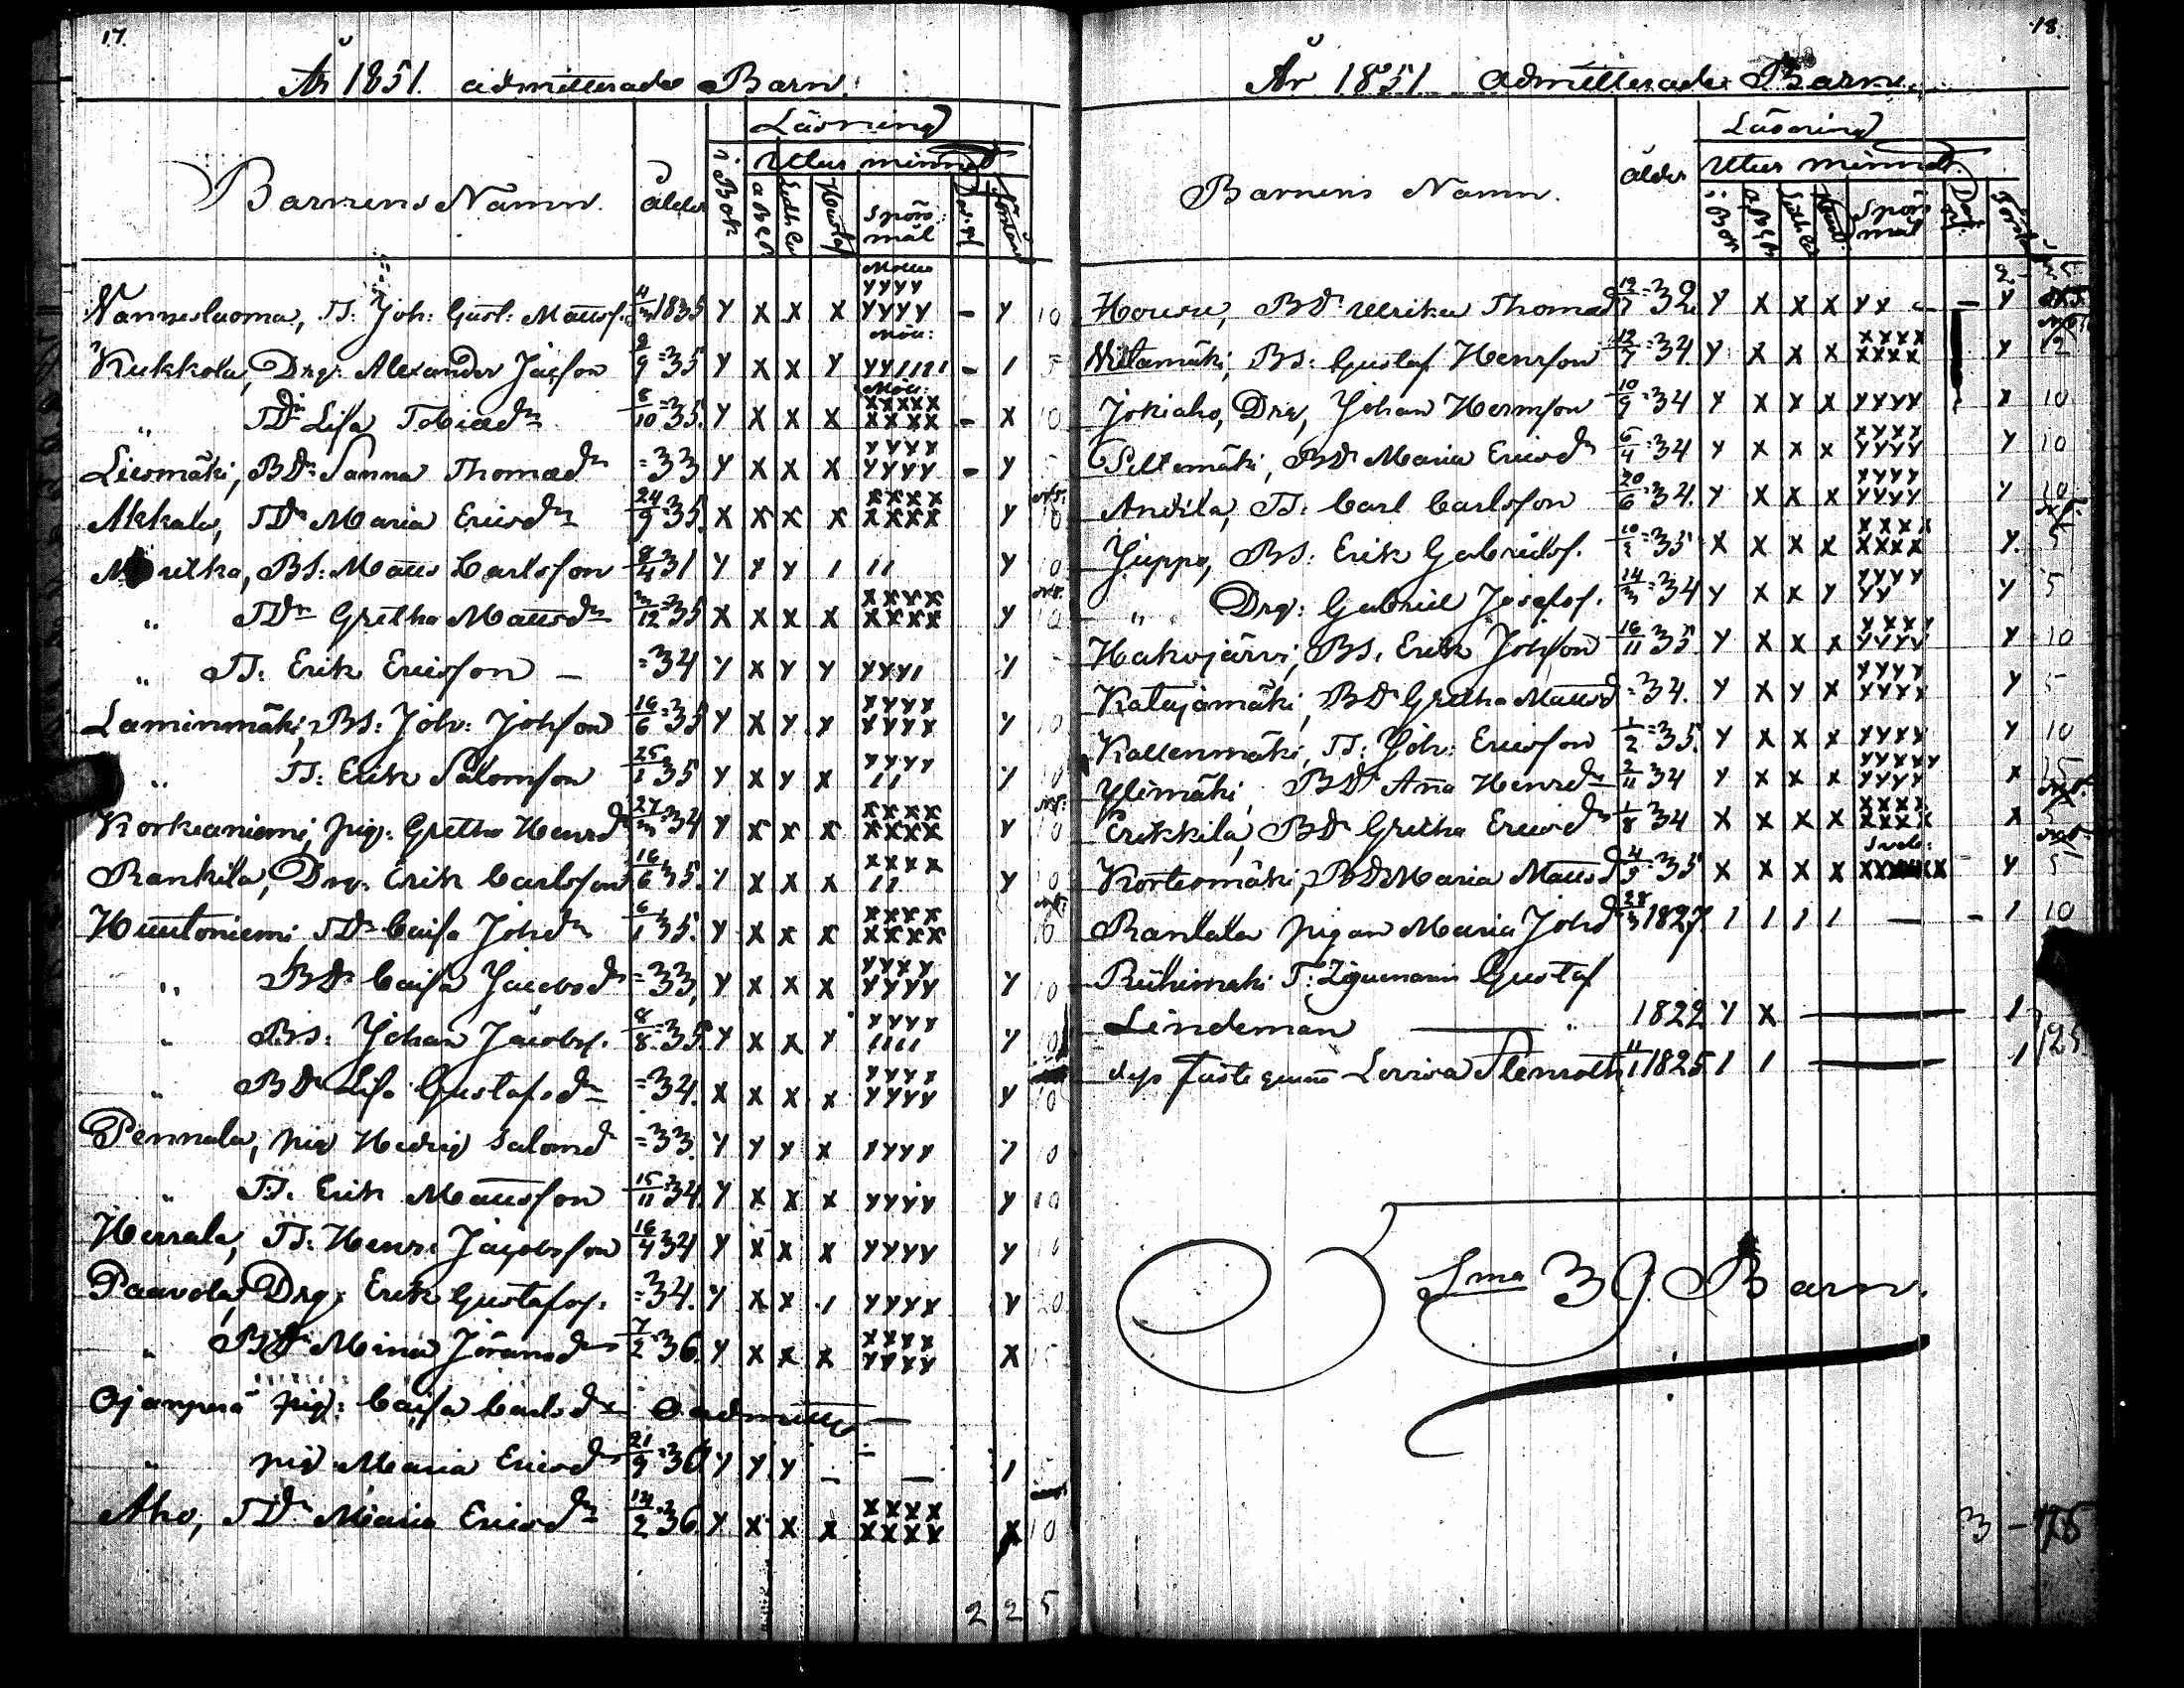 17.
År 1851. admitterade Barn.
Barnens Namn.
ålder
Läsning
i Bok
Utur minnet
a B C D
Huustaf
Spörs mål
Förstånd
Nannesluoma, TS. Joh: Gust: Mattsf. 1835 Y X X X YYYY YYYY - Y 10
Kukkola, Drg: Alexander Jacsson 9/9 =35 Y X X Y YYıııı - ı 5
" TDr Lisa Tobiædr 8/10 =35. Y X X X XXXXX XXXX - X 10
Liesmäki, BDr Sanna Thomædr =33 Y X X X YYYY YYYY - Y
Akkala, TDr Maria Ericsdr 24/9 =35. X X X X XXXX XXXX Y 10
BS: Matts Carlsson 8/4 31 Y Y Y ı ıı Y 10
" TDr Gretha Mattsdr /12 =35 X X X X XXXX XXXX Y 10
" TS. Erik Ericsson - =34 Y X Y Y YYYı Y
Laminmäki, BS: Joh: Johsson 16/6 =35 Y X Y X YYYY YYYY Y 10
" TS. Erik Salomsson 25/1 35 Y X Y X YYYY ıı Y 10
Korkeaniemi, pig: Gretha Henrdr 27/3 =34 Y X X X XXXX XXXX Y 10
Rankila, Drg. Erik Carlsson 16/6 35. Y X X X XXXX ıı Y 10
Huntoniemi, TDr Caisa Johdr 6/1 35. Y X X X XXXX XXXX 10
" BDr Caisa Jacobsdr =33, Y X X X YYYY YYYY Y 10
" BS: Johan Jacobsf. 8/8 =35. Y X X Y YYYY ıııı Y 10
" BDr Lisa Gustafsdr =34. X X X X YYYY YYYY Y 10
Pennala, pig Hedvig Salomdr =33. Y Y Y X YYYY Y 10
" TS. Erik Mattsson 15/11 34. Y X X X YYYY Y 10
Herrala, TS. Henr: Jacobsson 16/4 34 Y X X X YYYY Y 10
Paavola, Drg. Erik Gustafsf. =34. Y X X ı YYYY Y 20
" BDr Mina Jöransdr 7/2 =36. Y X X X XXXX YYYY X 15
Ojanperä pig: Caisa Carlsdr Oadmitt -
" pig Maria Ericsdr 21/9 =36 Y Y Y - - ı
Aho, TDr Maria Ericsdr 14/2 =36 Y X X X XXXX XXXX X 10
2 25
18.
År 1851. admitterade Barn.
Barnens Namn.
ålder
Läsning
Utur minnet
i Bok
Spörs mål
Housu, BDr Ulrika Thomædr =32 Y X X X YY - Y
Viitamäki, BS: Gustaf Henrsson 12/7 =34. Y X X X XXXX XXXX Y 12
Jokiaho, Drg, Johan Hermsson 10/9 =34 Y X X X YYYY X 10
Peltomäki, BDr Maria Ericsdr 6/4 =34 Y X X X XXXX YYYY Y 10
Antila, TS. Carl Carlsson 20/6 =34. Y X X X YYYY YYYY Y 10
Juppo, BS: Erik Gabrielsf. =35 X X X X XXXX XXXX Y. 5
" Drg: Gabriel Josefsf. 14/3 =34 Y X X Y YYYY YY Y 5
Hakojärvi, BS. Erik Johsson 16/11 35. Y X X X YXXY YYYY Y 10
Katajamäki, BDr Gretha Mattsd =34. Y X Y X YYYY YYYY Y 5
Kallenmäki, TS. Joh: Ericsson 1/2 =35. Y X X X YYYY Y 10
Ylimäki, BDr Anna Henrsdr 2/11 34 Y X X X YYYYY YYYY X 15
Erikkilä, BDr Gretha Ericsdr 1/8 34 X X X X XXXX XXXX X 5
Korteomäki, BDr Maria Mattsd =35 X X X X Y 5
Rantala pigan Maria Johd 28/3 1827 ı ı ı ı - - ı 10
Riihimäki T: Gustaf
Lindeman " 1822 Y X - ı
Lovisa Stenroth 1825 ı ı - ı 125
Sma 39 Barn.
3 - 75